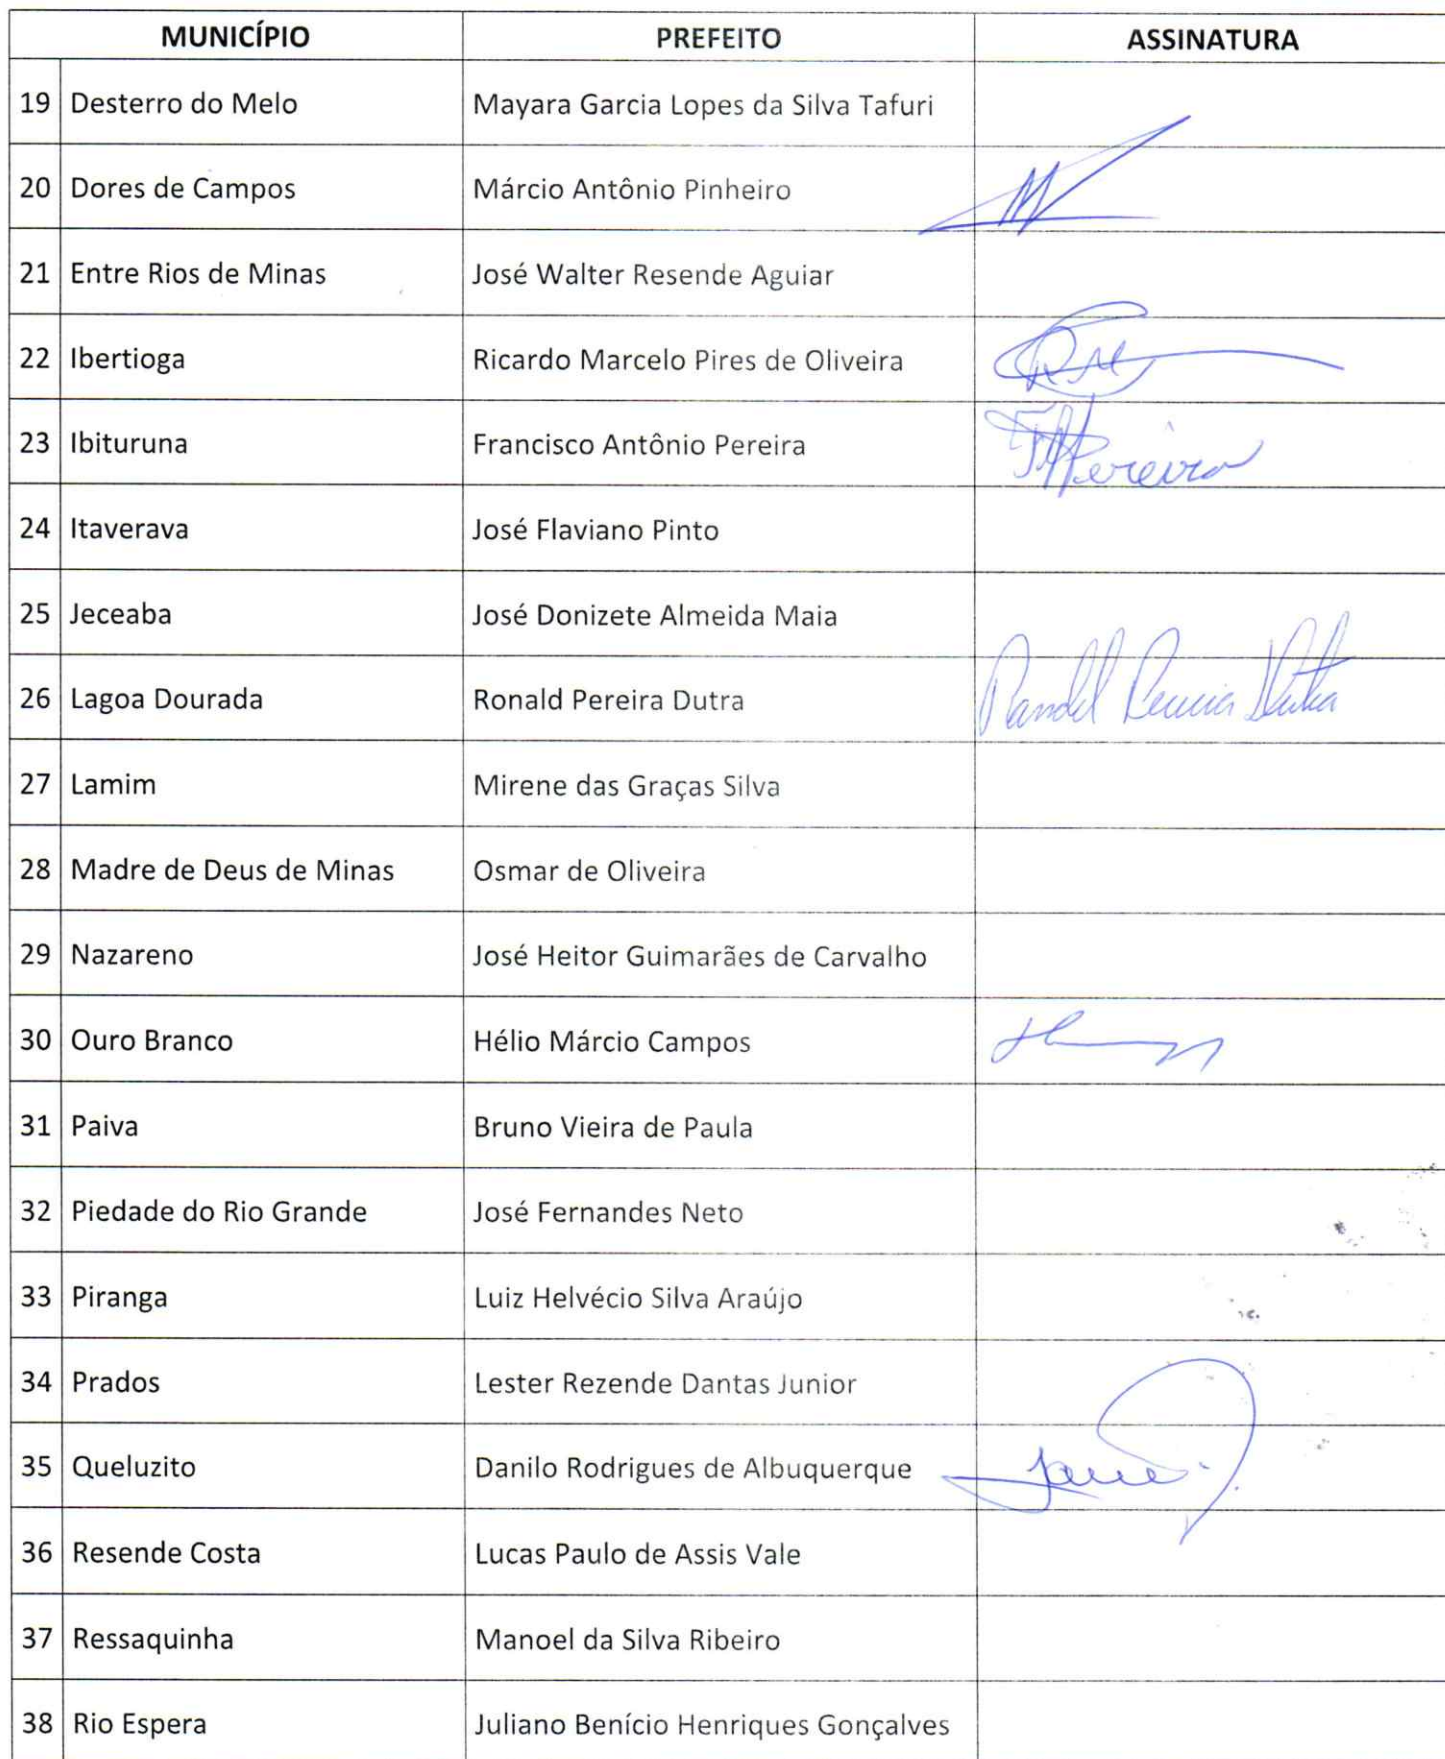 MUNICÍPIO PREFEITO ASSINATURA
19 Desterro do Melo Mayara Garcia Lopes da Silva Tafuri
20 Dores de Campos Márcio Antônio Pinheiro
21 Entre Rios de Minas José Walter Resende Aguiar
22 Ibertioga Ricardo Marcelo Pires de Oliveira
23 Ibituruna Francisco Antônio Pereira FAPereira
24 Itaverava José Flaviano Pinto
25 Jeceaba José Donizete Almeida Maia
26 Lagoa Dourada Ronald Pereira Dutra
27 Lamim Mirene das Graças Silva
28 Madre de Deus de Minas Osmar de Oliveira
29 Nazareno José Heitor Guimarães de Carvalho
30 Ouro Branco Hélio Márcio Campos
31 Paiva Bruno Vieira de Paula
32 Piedade do Rio Grande José Fernandes Neto
33 Piranga Luiz Helvécio Silva Araújo
34 Prados Lester Rezende Dantas Junior
35 Queluzito Danilo Rodrigues de Albuquerque
36 Resende Costa Lucas Paulo de Assis Vale
37 Ressaquinha Manoel da Silva Ribeiro
38 Rio Espera Juliano Benício Henriques Gonçalves